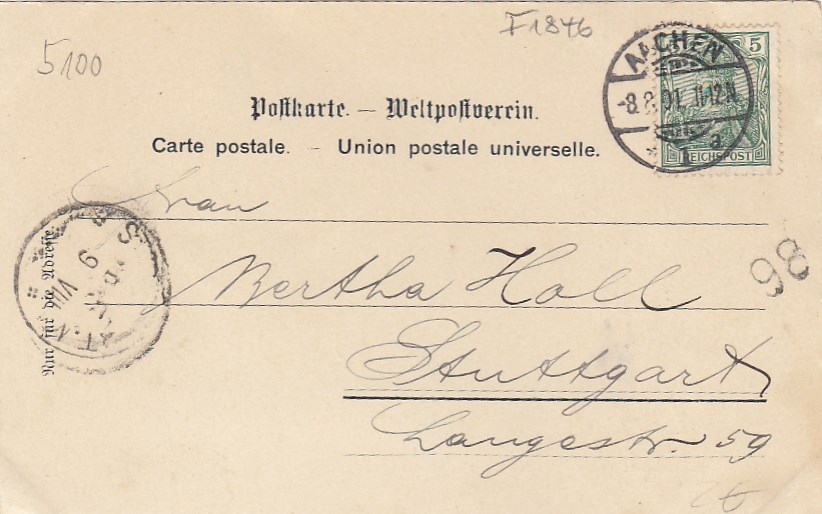 F1846
5100
AACHEN
-8.8.01. 11-12N.
* 1 a
5
REICHSPOST
Postkarte. – Weltpostverein.
Carte postale. – Union postale universelle.
Frau
Bertha Holl
Stuttgart
Langestr. 59
Nur für die Adresse.
98
9 VIII